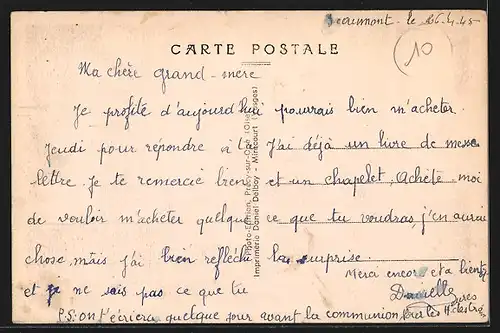 Beaumont. le 26.4.45
10
CARTE POSTALE
Ma chère grand-mère
Je profite d'aujourd'hui
Jeudi pour répondre à ta
lettre. Je te remercie bien
de vouloir m'acheter quelque
chose mais j'ai bien réfléchi
et je ne sais pas ce que tu
pourrais bien m'acheter.
J'ai déjà un livre de messe
et un chapelet, Achète-moi
ce que tu voudras j'en aurai
la surprise.
Merci encore et a bientôt
Danielle
P.S. on t'écrira quelque jour avant la communion pour les
Imprimerie Daniel Delboy - Mirecourt (Vosges)